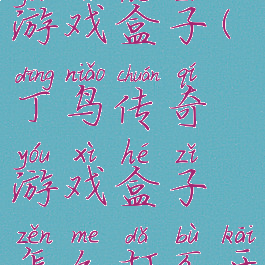 游戏盒子(
dīng niǎo chuán qí
丁鸟传奇
yóu xì hé zǐ
游戏盒子
zěn me dǎ bù kāi
怎么打不开